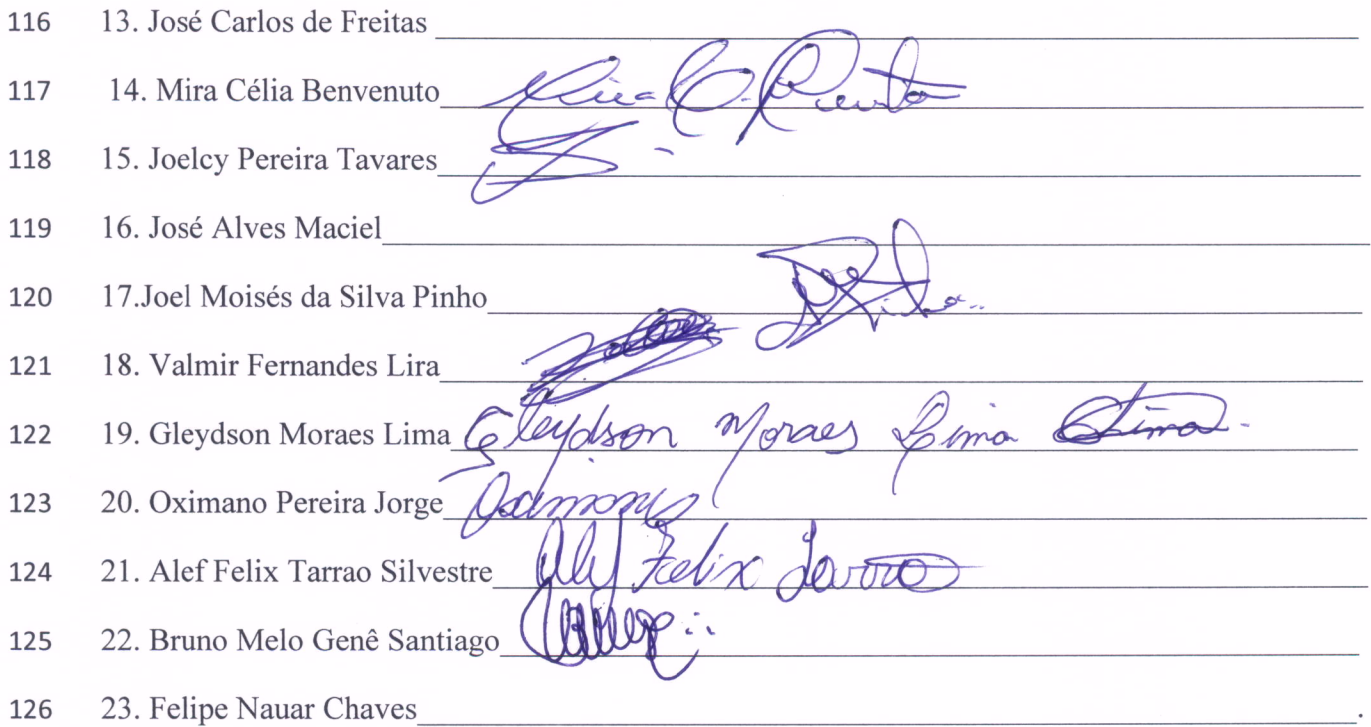 116 13. José Carlos de Freitas
117 14. Mira Célia Benvenuto
118 15. Joelcy Pereira Tavares
119 16. José Alves Maciel
120 17.Joel Moisés da Silva Pinho
121 18. Valmir Fernandes Lira
122 19. Gleydson Moraes Lima Gleydson Moraes Lima
123 20. Oximano Pereira Jorge
124 21. Alef Felix Tarrao Silvestre Alef Felix
125 22. Bruno Melo Genê Santiago
126 23. Felipe Nauar Chaves.